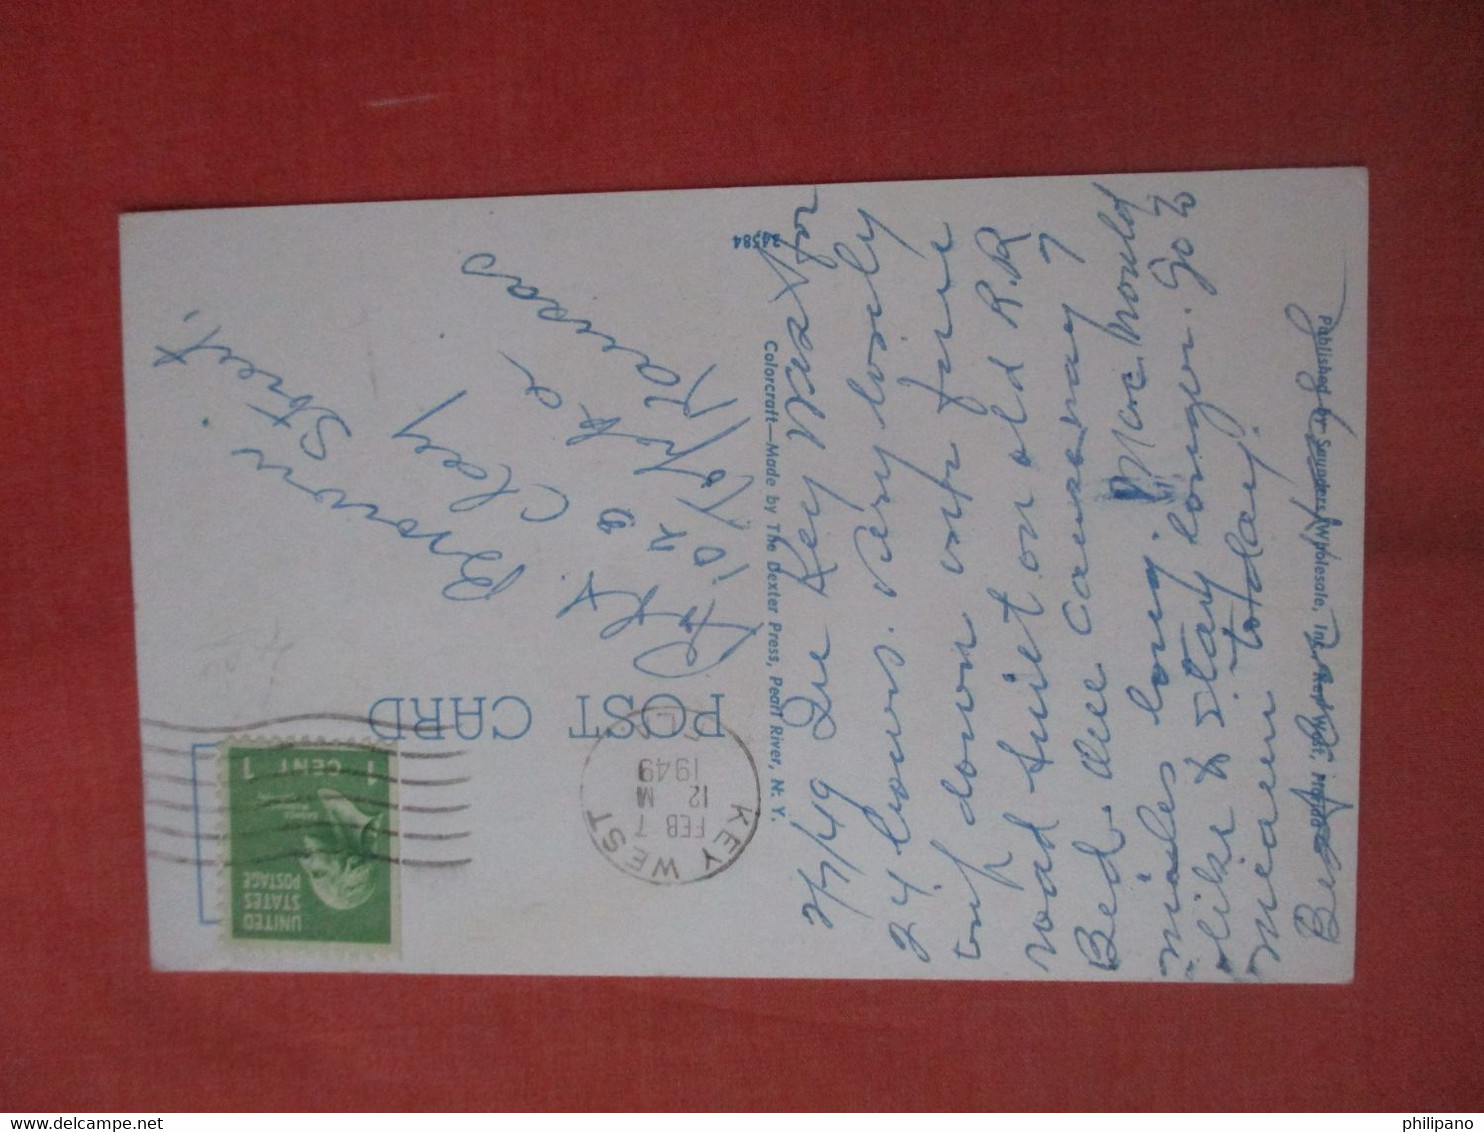 POST CARD
UNITED
STATES
POSTAGE
1 CENT 1
KEY WEST
FEB 7
12 M
1949
34584
Colorcraft—Made by The Dexter Press, Pearl River, N. Y.
Published by Saunders Wholesale, Inc., Key West, Florida
2/7/49 In Key West for
24 hours. Very lovely
trip down
road built on old R.R
Bed. All causeway
miles long. would
like to stay longer. Go to
Miami today.
Brown
Street.
Clay
Topeka
Kansas
philipano